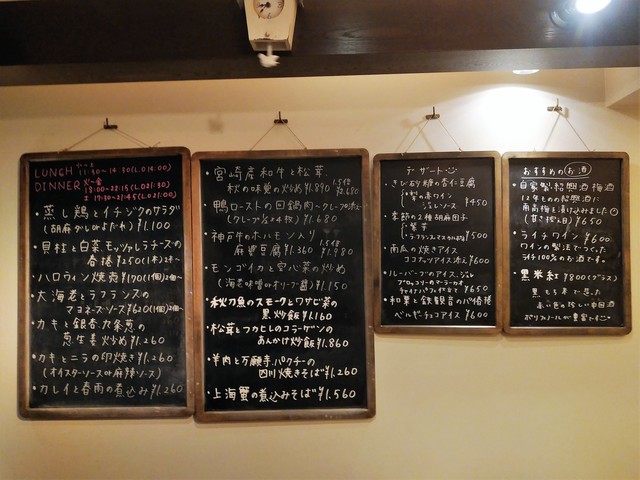 LUNCH 11:30〜14:30(L.O14:00)
DINNER 火〜金 18:00〜22:15(L.O21:30)
土 17:30〜21:45(L.O21:00)
・蒸し鶏とイチジクのサラダ
(胡麻ダレorよだれ) ¥1.100
・貝柱と白菜、モッツァレラチーズの
春捲 ¥250(1本)2本〜
・ハロウィン焼売 ¥190(1個)2個〜
・大海老とラフランスの
マヨネーズソース ¥620(1個)2個〜
・カキと銀杏、九条葱の
葱生姜炒め ¥1.260
・カキとニラの卵焼き ¥1.260
(オイスターソースor麻辣ソース)
・カレイと春雨の煮込み ¥1.260
・宮崎産和牛と松茸、
秋の味覚の炒め ¥1.890 ¥2.680
・鴨ローストの回鍋肉〜クレープ添え〜
(クレープ4枚) ¥1.680
・神戸牛のホルモン入り
麻婆豆腐 ¥1.360 ¥1.980
・モンゴイカと空心菜の炒め
(海老味噌orオリーブ醤) ¥1.150
・秋刀魚のスモークとワサビ菜の
黒炒飯 ¥1.160
・松茸とフカヒレのコラーゲンの
あんかけ炒飯 ¥1.860
・羊肉と万願寺、パクチーの
四川焼きそば ¥1.260
・上海蟹の煮込みそば ¥1.560
デザート
・きび砂糖の杏仁豆腐
梨の赤ワイン
ジュレソース ¥450
・季節の2種胡麻団子
紫芋
ラフランスマスカルポーネ ¥500
・南瓜の焼きアイス
ココナッツアイス添え ¥600
チャイナパフェ仕立て ¥650
・和栗と鉄観音のパイ春捲
ベルギーチョコアイス ¥600
おすすめのお酒
・自家製・紹興酒梅酒
12年ものの紹興酒に
南高梅を漬けみました
(甘さ控え目) ¥650
・ライチワイン ¥600
ワインの製法でつくった
ライチ100%のお酒です。
・黒米紅 ¥800(グラス)
黒もち米で造った
赤い色の珍しい中国酒
ポリフェノールが豊富ですよ